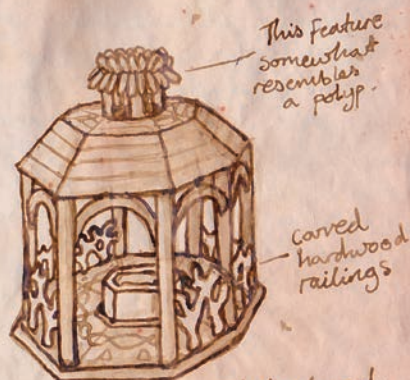 This feature
somewhat
resembles
a polyp.
carved
hardwood
railings